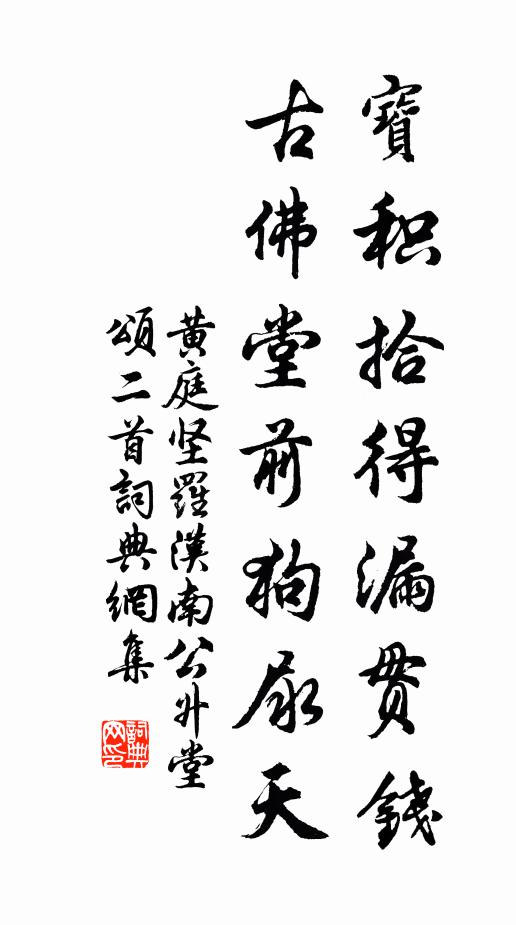 寶积拾得漏貫錢
古佛堂前狗尿天
黄庭坚羅漢南公升堂
頌二首詞典網集
詞典网印